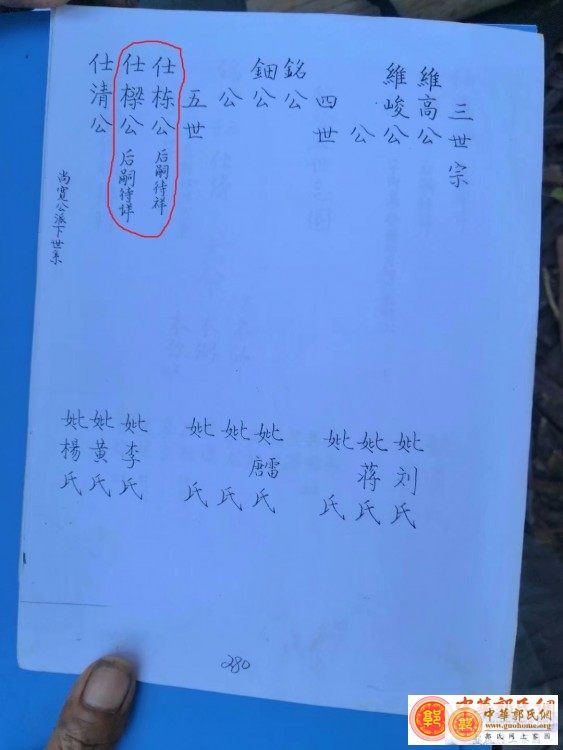 三世宗
維高公
維峻公
公
四世
銘公
鈿公
公
五世
仕栋公 后嗣待祥
仕樑公 后嗣待详
仕清公
尚宽公派下世系
妣刘氏
妣蒋氏
妣氏
妣氏
妣氏
妣氏
妣李氏
妣黄氏
妣楊氏
280
中華郭氏網
中華郭氏網
www.guohome.org
郭氏网上家园